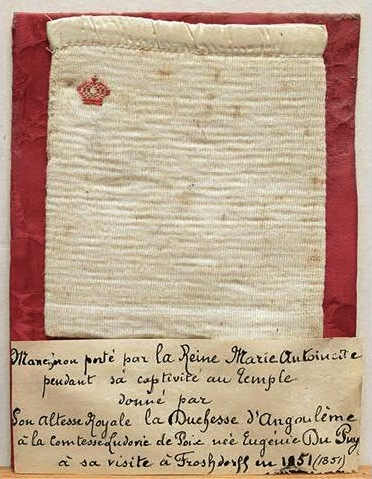 Manchon porté par la Reine Marie Antoinette
pendant sa captivité au Temple
donné par
Son Altesse Royale la Duchesse d'Angoulême
à la Comtesse Ludovic de Poix née Eugénie Du Puy
à sa visite à Froshdorff en 1851 (1851)